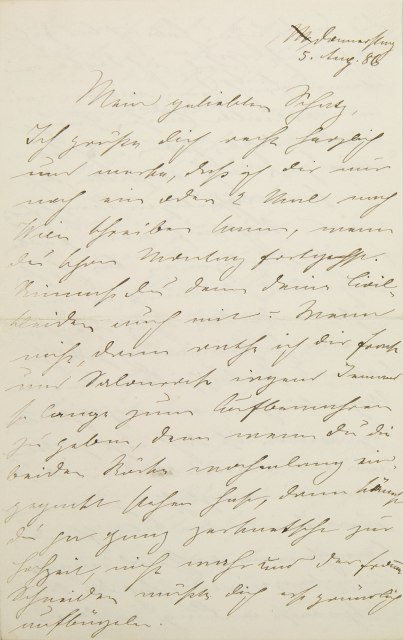 Donnerstag
5. Aug. 86
Mein geliebter Schatz,
Ich grüße dich recht herzlich
und merke, daß ich dir nur
noch ein oder 2 Mal nach
Wien schreiben kann, wenn
du schon Montag fortgehst.
Nimmst du denn deine Civil-
kleider auch mit? Wenn
nicht, dann rathe ich dir Frack
und Salonrock irgend Jemand
so lange zum Aufbewahren
zu geben, denn wenn du die
beiden Röcke wochenlang ein-
gepackt stehen hast, dann kommst
du ja ganz zerknetscht zur
Hochzeit, nicht wahr und der
Schneider müßte dich erst gründlich
aufbügeln.